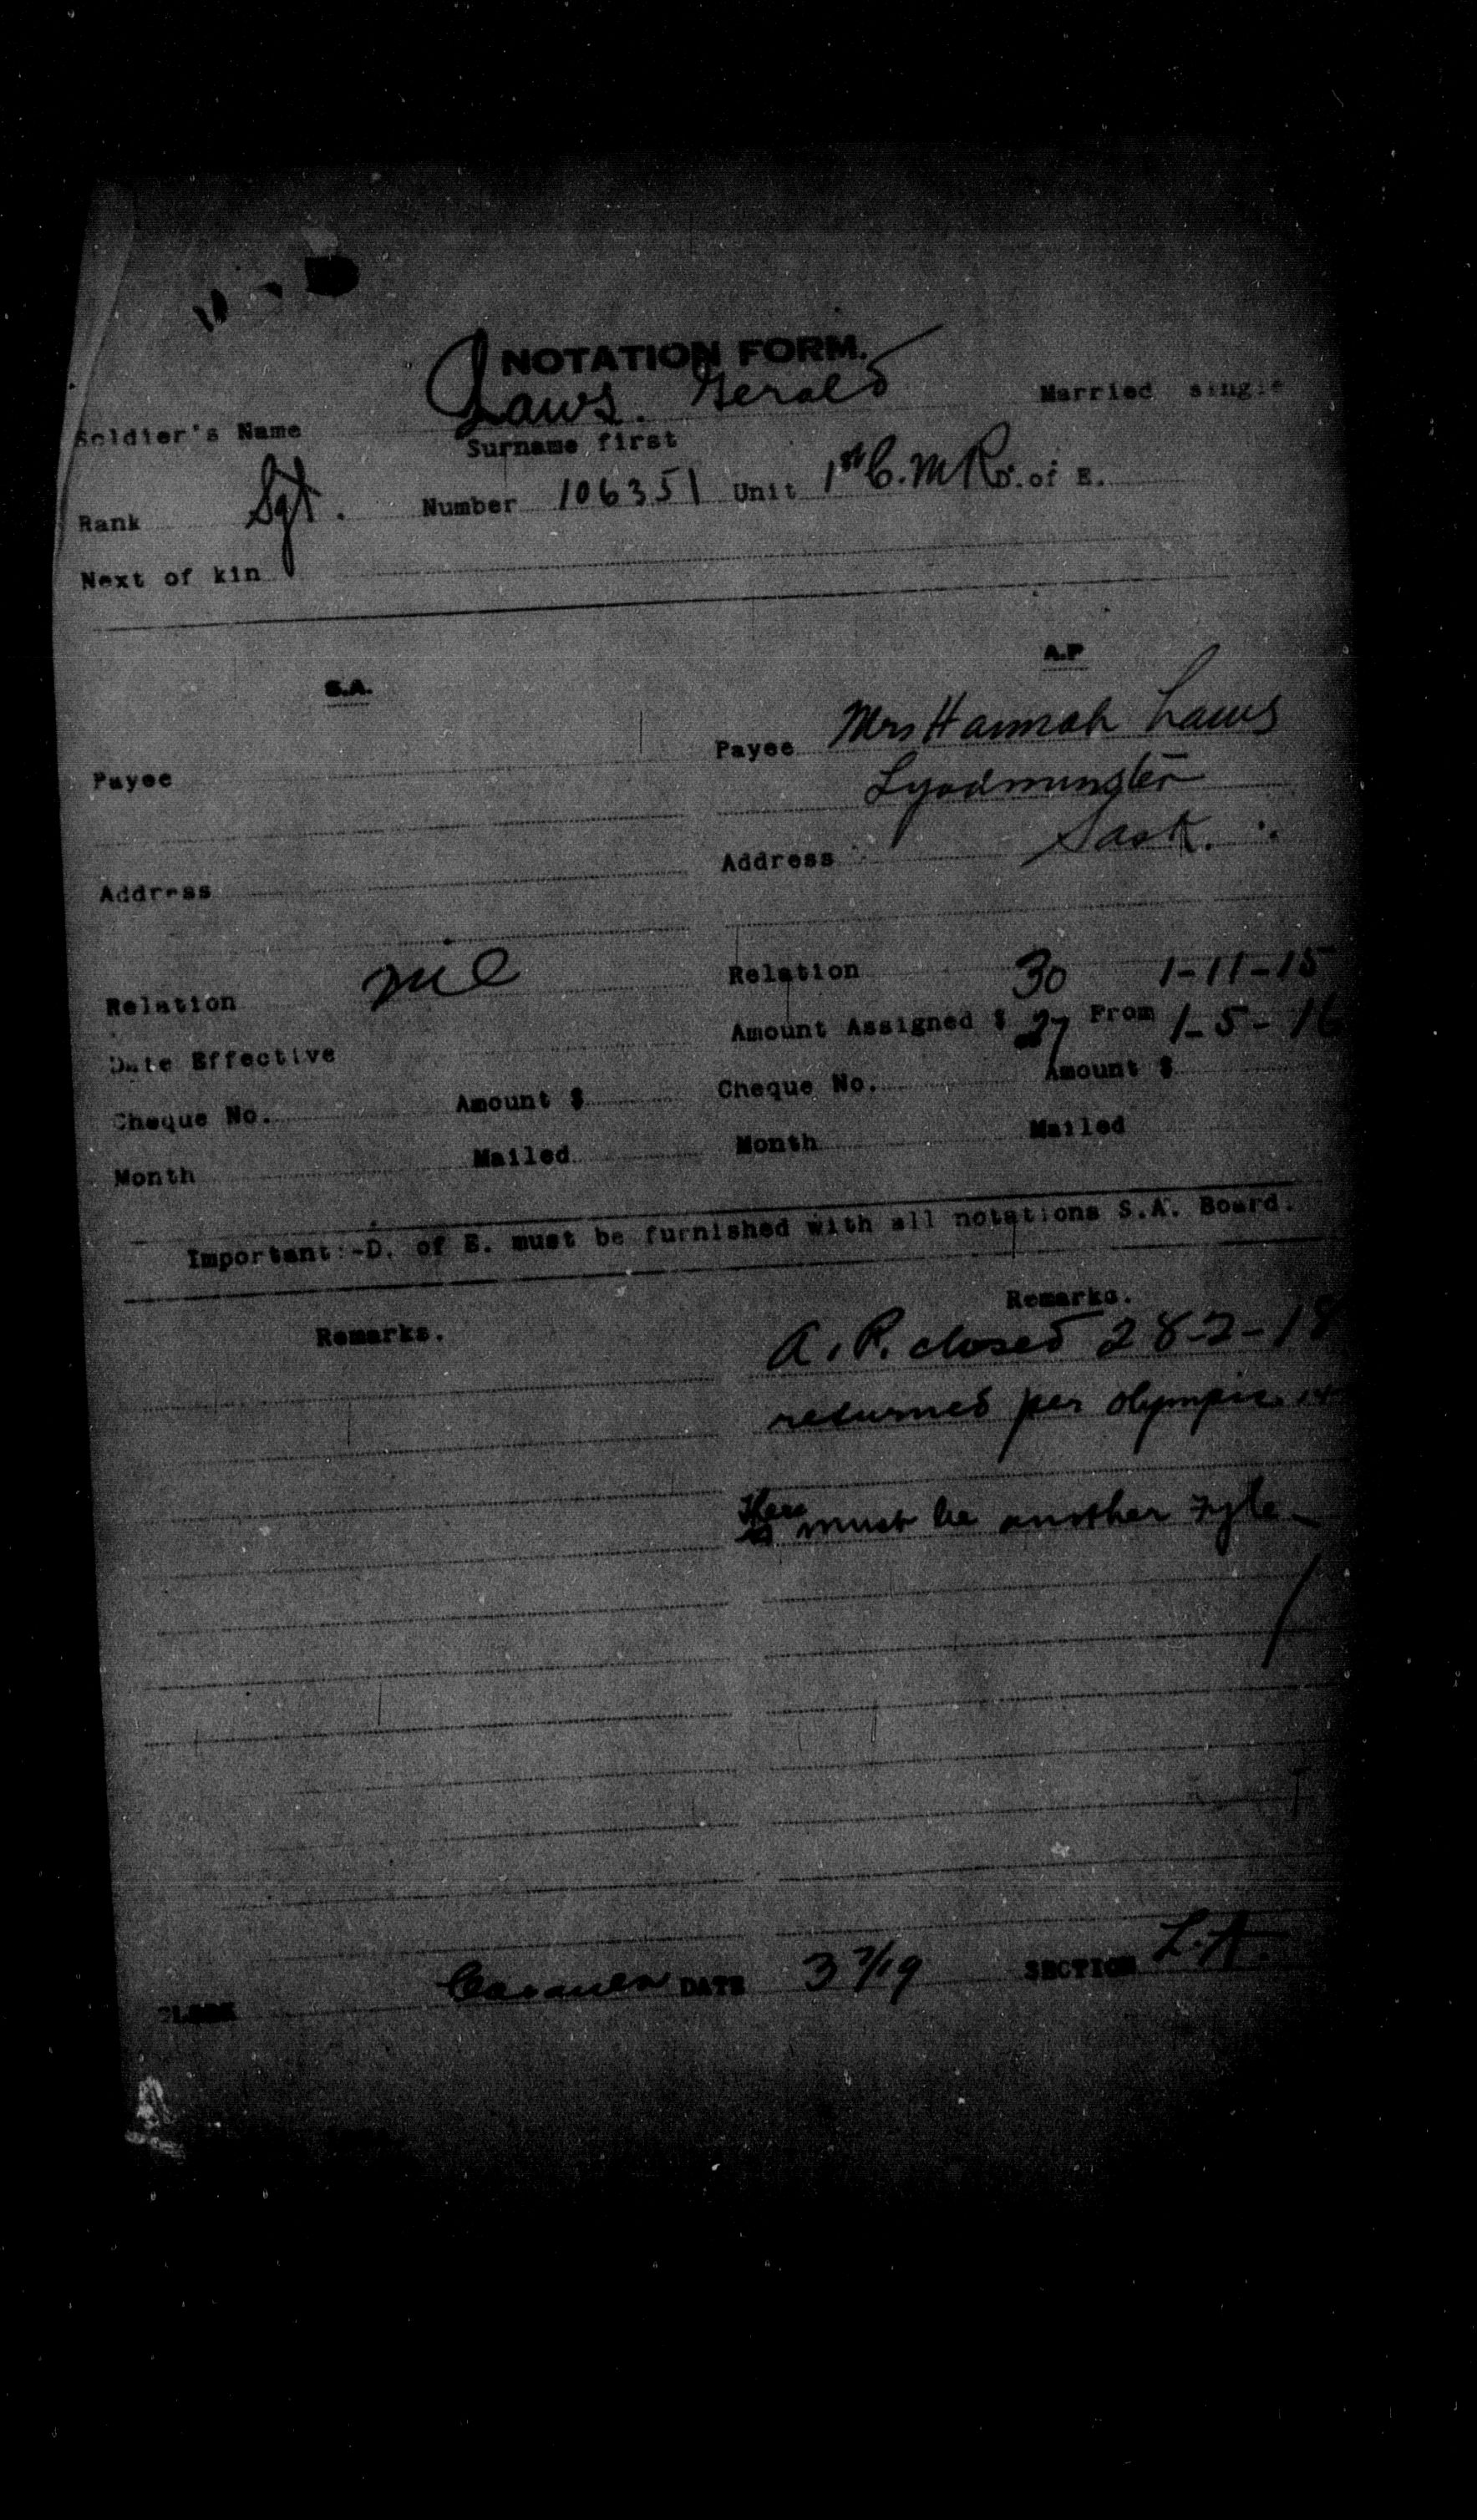 NOTATION FORM.
Soldier's Name Laws. Gerald Married single
Surname first
Rank Sgt. Number 106351 Unit 1st C.M.R. D. of E.
Next of kin
S.A. A.P
Payee Payee Mrs Hannah Laws
Lyodminster
Address Address Sask.
Relation nil Relation 30 1-11-15
Date Effective Amount Assigned $ 27 From 1-5-16
Cheque No. Amount $ Cheque No. Amount $
Month Mailed Month Mailed
Important:-D. of E. must be furnished with all notations S.A. Board.
Remarks. Remarks.
A.P. closed 28-2-18
returned per Olympic
There must be another Fyle
CLERK DATE 3 7/19 SECTION L.A.